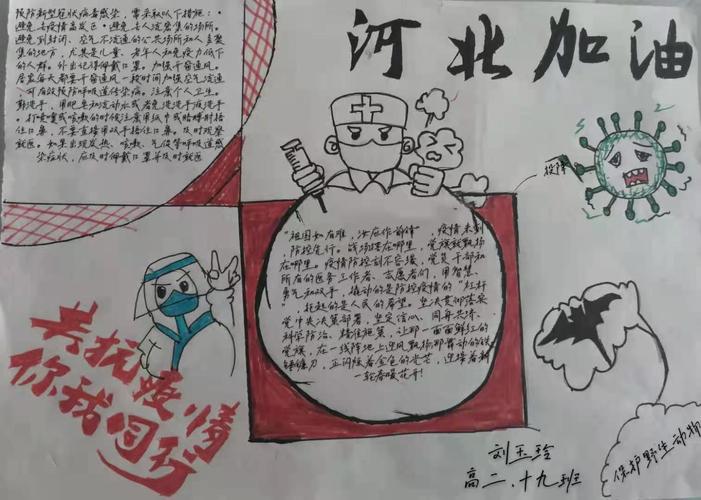 河北加油
预防新型冠状病毒感染，需采取以下措施：·
避免去疫情高发区·避免去人流密集的场所。
避免到封闭、空气不流通的公共场所和人多聚
集的地方，尤其是儿童、老年人和免疫力低下
的人群。外出记得佩戴口罩。加强开窗通风。
居家每天都要开窗通风一段时间加强空气流通
可有效预防呼吸道传染病。注意个人卫生。
勤洗手，用肥皂和流动水或者免洗洗手液洗手。
打喷嚏或咳嗽的时候注意用纸巾或胳膊肘捂
住口鼻，不要直接用双手捂住口鼻。及时观察
就医。如果出现发热、咳嗽、气促等呼吸道感
染症状，应及时佩戴口罩并及时就医
投降
"祖国如有难，汝应作前锋"，疫情来到
，防控先行。战场搭在哪里，党旗就飘扬
在哪里。疫情防控刻不容缓，党员干部和
所有的医务工作者、志愿者们，用智慧、
勇气和双手，撬动的是防控疫情的"杠杆
，托起的是人民的希望。坚决贯彻落实
党中央决策部署，坚定信心、同舟共济、
科学防治、精准施策，让那一面面鲜红的
党旗，在一线阵地上迎风飘扬那舞动的铁
锤镰刀，正闪烁着金色的光芒，迎接着新
一轮春暖花开！
共抗疫情
你我同行
刘玉玲
高二、十九班
保护野生动物